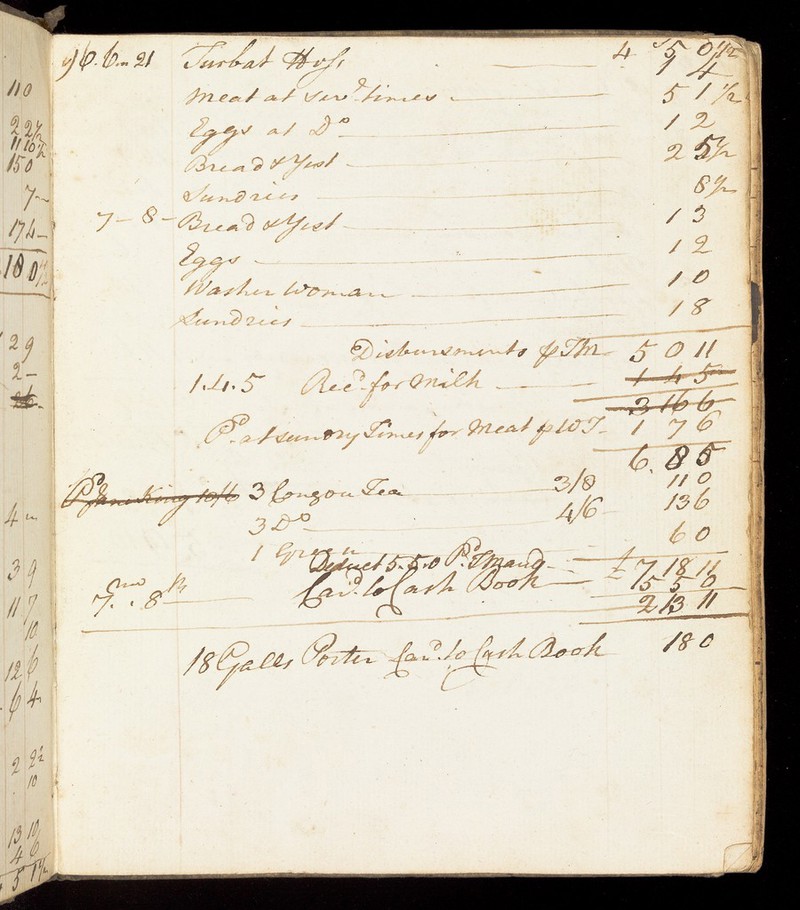 110
2 2½
11 10½
15 0
7
17 4
18 0
2 9
2
4
3 9
11 7
10
12 6
6 4
2 2½
10
13 10
4 6
5 1½
6 m 21 4 5 0½
1 4
Meat at sev.l times 5 1½
Eggs at D.o 1 2
Bread & Yest 2 5½
Sundries 8½
7 - 8 - Bread & Yest 1 3
Eggs 1 2
Washer Woman 1 0
Sundries 1 8
Disbursments p TM 5 0 11
1.4.5 Rec.d for Milk 1 4 5
3 16 6
P.d at sundry Times for Meat p WT 1 7 6
6. 8 5
P.d Jane King 10/6 3 Congou Tea 3/8 11 0
3 D.o 4/6 13 6
1 Green 6 0
Deduct 5.5.0 P.d TMaud £ 7 18 11
7.mo 8th Car.d to Cash Book 5 5 0
2 13 11
18 Galls Porter Car.d to Cash Book 18 0